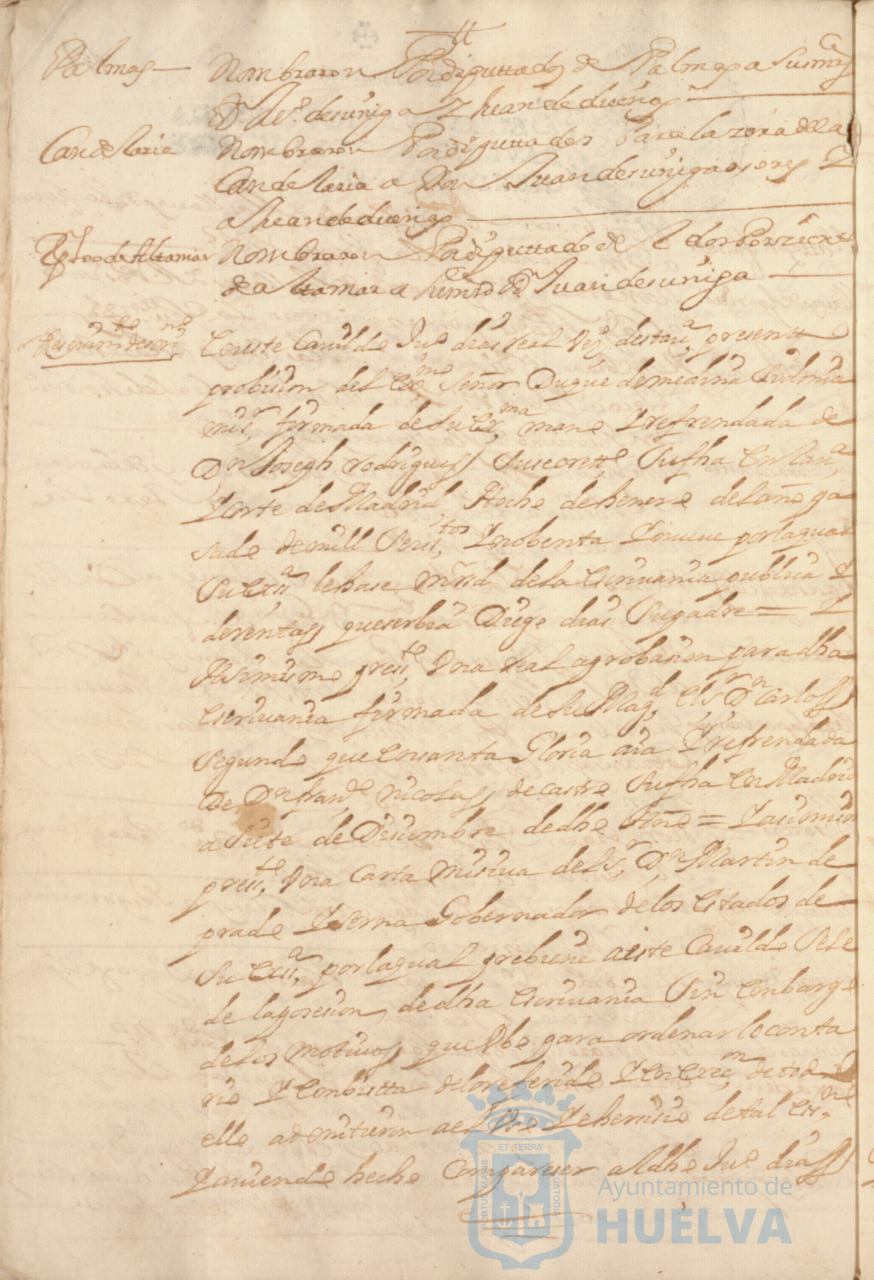 Palmas — Nombraron Por diputtados de Palmas a sus mrds
Dn de suniga Y Juan de dueñas —
Candelaria Nombraron Por diputtados Para la zera de la
Candelaria a Don Juan de suniga osores Y
a Juan de dueñas —
de Altamar Nombraron Por diputtado de
de altamar a su mrd Dn Juan de suniga —
En este Cauildo Juo dias real Vezo desta va presentto
probision del Exmo Señor Duque de medina Sidonia
mi sr firmada de su Exma mano Y refrendada de
Dn Joseph rodrigues Su secrettо Su fha En la va
Y Corte de Madrid A ocho de henero del año pa
sado de mill Seistos Y nobenta Y nueue por la qual
Su Exa le hase mrd de la Escriuania publica Y
de rentas que serbia Diego dias Su padre = Y
Asimismo presto Una real aprobasion para dha
Escriuania firmada de Su Magd El Sr Dn Carlos
Segundo que En santa Gloria aia Y refrendada
De Dn Frando nicolas de castro Su fha En Madrid
a Siete de Disiembre de dho Año = Y asimismo
presto Una Carta misiua del Sr Dn Martin de
prado Y serna Gobernador de los Estados de
Su Exa, por la qual prebiene a este Cauildo Se le
de la posesion de dha Escriuania Sin Enbargo
de los motiuos que Ubo para ordenar lo conta
rio Y En bistta de lo referido Y En Execon de todo
ello admitieron a el Uso Y exersisio de tal Esno
Y auiendo hecho Compareser a el dho Juo dias
ET TERRA
PORTUS MARIS
CUSTODIA
Ayuntamiento de
HUELVA